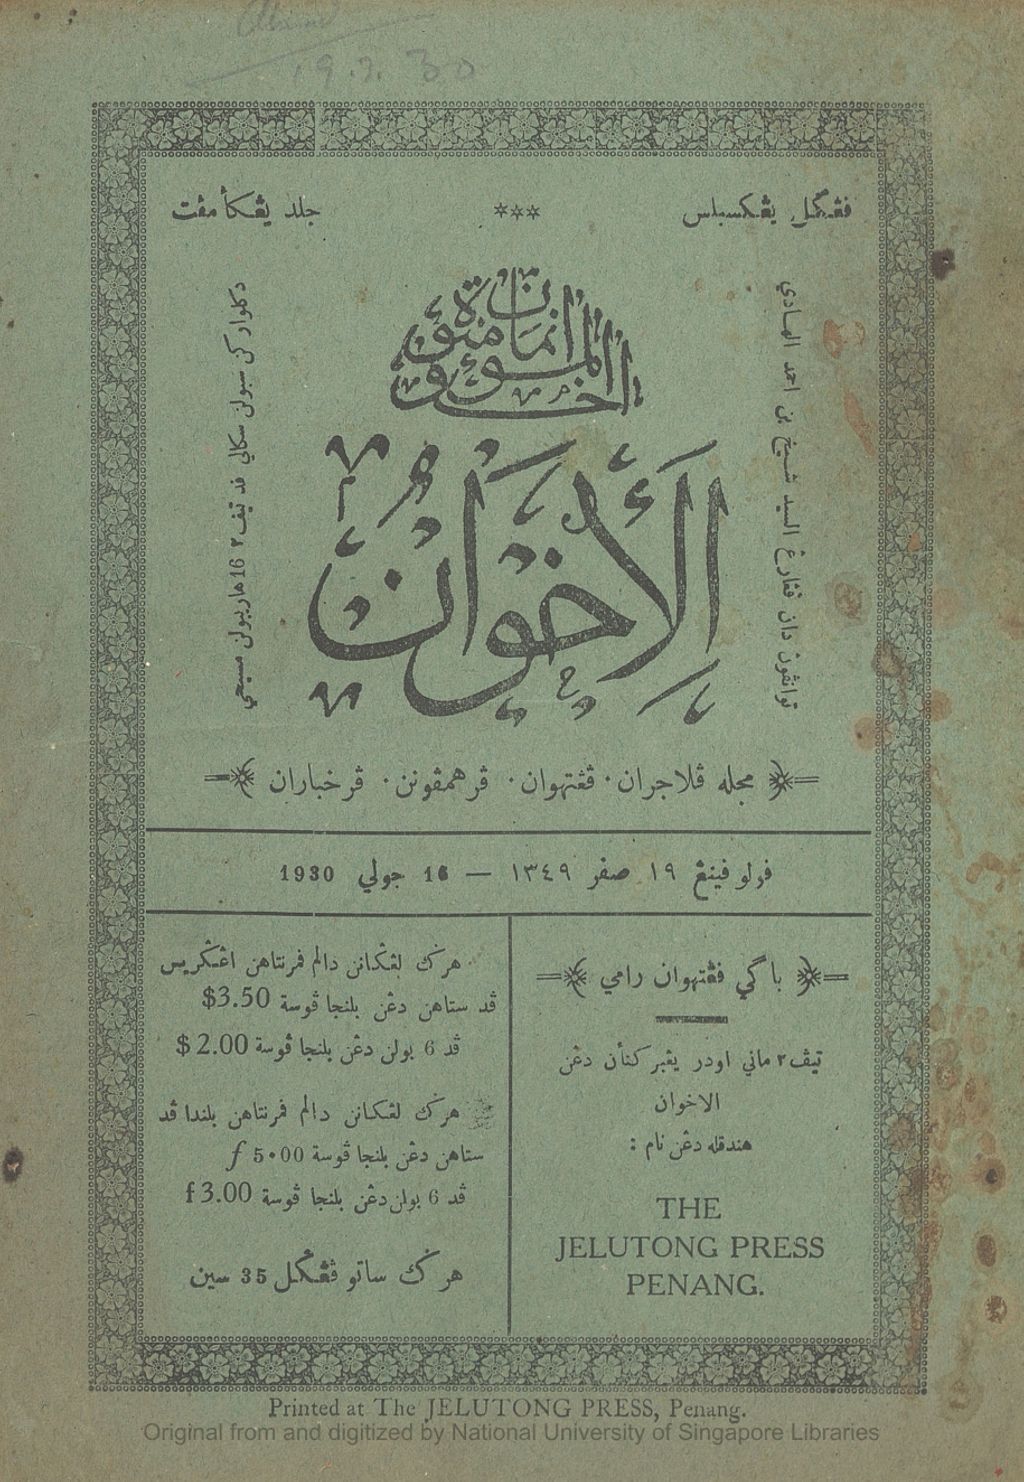 19.7.30
ڤڠݢل يڠكسبلس *** جلد يڠكأمڤت
انما المؤمنون اخوة
توانڤون دان ڤڠارڠ السيد شيخ بن احمد الهادي
دكلواركن سبولن سكالي ڤد تيڤ٢ 16 هاريبولن مسيحي
الإخوان
مجله ڤلاجران · ڤڠتهوان · ڤرهمڤونن · ڤرخباران
ڤولو ڤينڠ ١٩ صفر ١٣٤٩ — 16 جولي 1930
باݢي ڤڠتهوان رامي
تيڤ٢ ماني اودر يڠبركنأن دڠن
الاخوان
هندقله دڠن نام :
THE
JELUTONG PRESS
PENANG.
هرݢ لڠݢانن دالم ڤمرنتاهن اڠݢريس
ڤد ستاهن دڠن بلنجا ڤوسة $3.50
ڤد 6 بولن دڠن بلنجا ڤوسة $2.00
هرݢ لڠݢانن دالم ڤمرنتاهن بلندا ڤد
ستاهن دڠن بلنجا ڤوسة f 5.00
ڤد 6 بولن دڠن بلنجا ڤوسة f 3.00
هرݢ ساتو ڤڠݢل 35 سين
Printed at The JELUTONG PRESS, Penang.
Original from and digitized by National University of Singapore Libraries